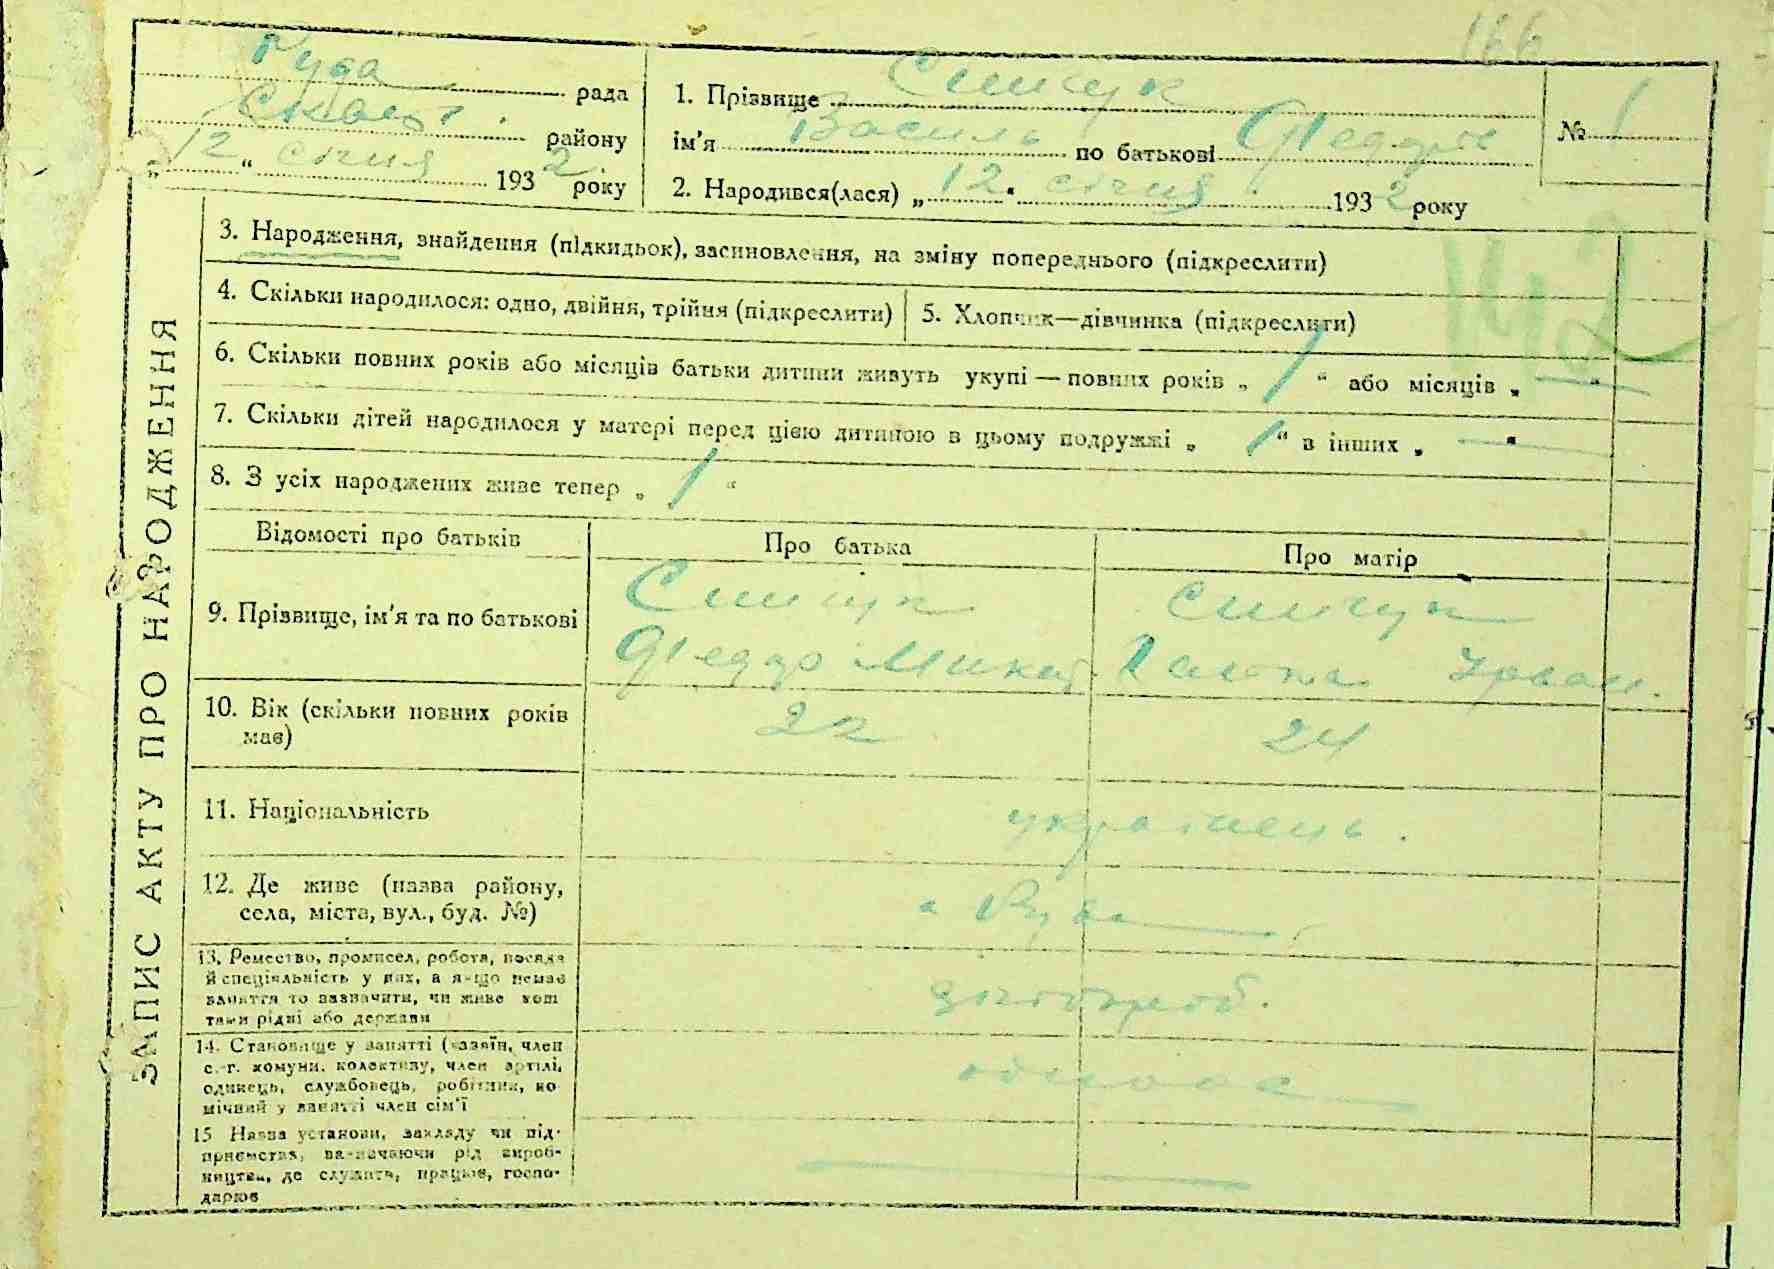 166
Руда рада
район
"12" січня 1932 року
1. Прізвище
ім'я Василь по батькові Федор
2. Народився(лася) "12" січня 1932 року
№ 1
142
ЗАПИС АКТУ ПРО НАРОДЖЕННЯ
3. Народження, знайдення (підкидьок), засиновлення, на зміну попереднього (підкреслити)
4. Скільки народилося: одно, двійня, трійня (підкреслити)
5. Хлопчик—дівчинка (підкреслити)
6. Скільки повних років або місяців батьки дитини живуть укупі — повних років „ 1 “ або місяців „ — “
7. Скільки дітей народилося у матері перед цією дитиною в цьому подружжі „ 1 “ в інших „ — “
8. З усіх народжених живе тепер „ 1 “
Відомості про батьків
Про батька
Про матір
9. Прізвище, ім'я та по батькові
Федор
10. Вік (скільки повних років
має)
22
24
11. Національність
українець.
12. Де живе (назва району,
села, міста, вул., буд. №)
с Руда
13. Ремество, промисел, робота, посада
й спеціяльність у них, а якщо немає
заняття то зазначити, чи живе кош
тами рідні або держави
хлібороб.
14. Становище у занятті (хазяїн, член
с.-г. комуни, колективу, член артілі,
одинець, службовець, робітник, по
мічний у занятті член сім'ї
15 Назва установи, закладу чи під-
приємства, зазначаючи рід вироб-
ництва, де служить, працює, госпо-
дарює